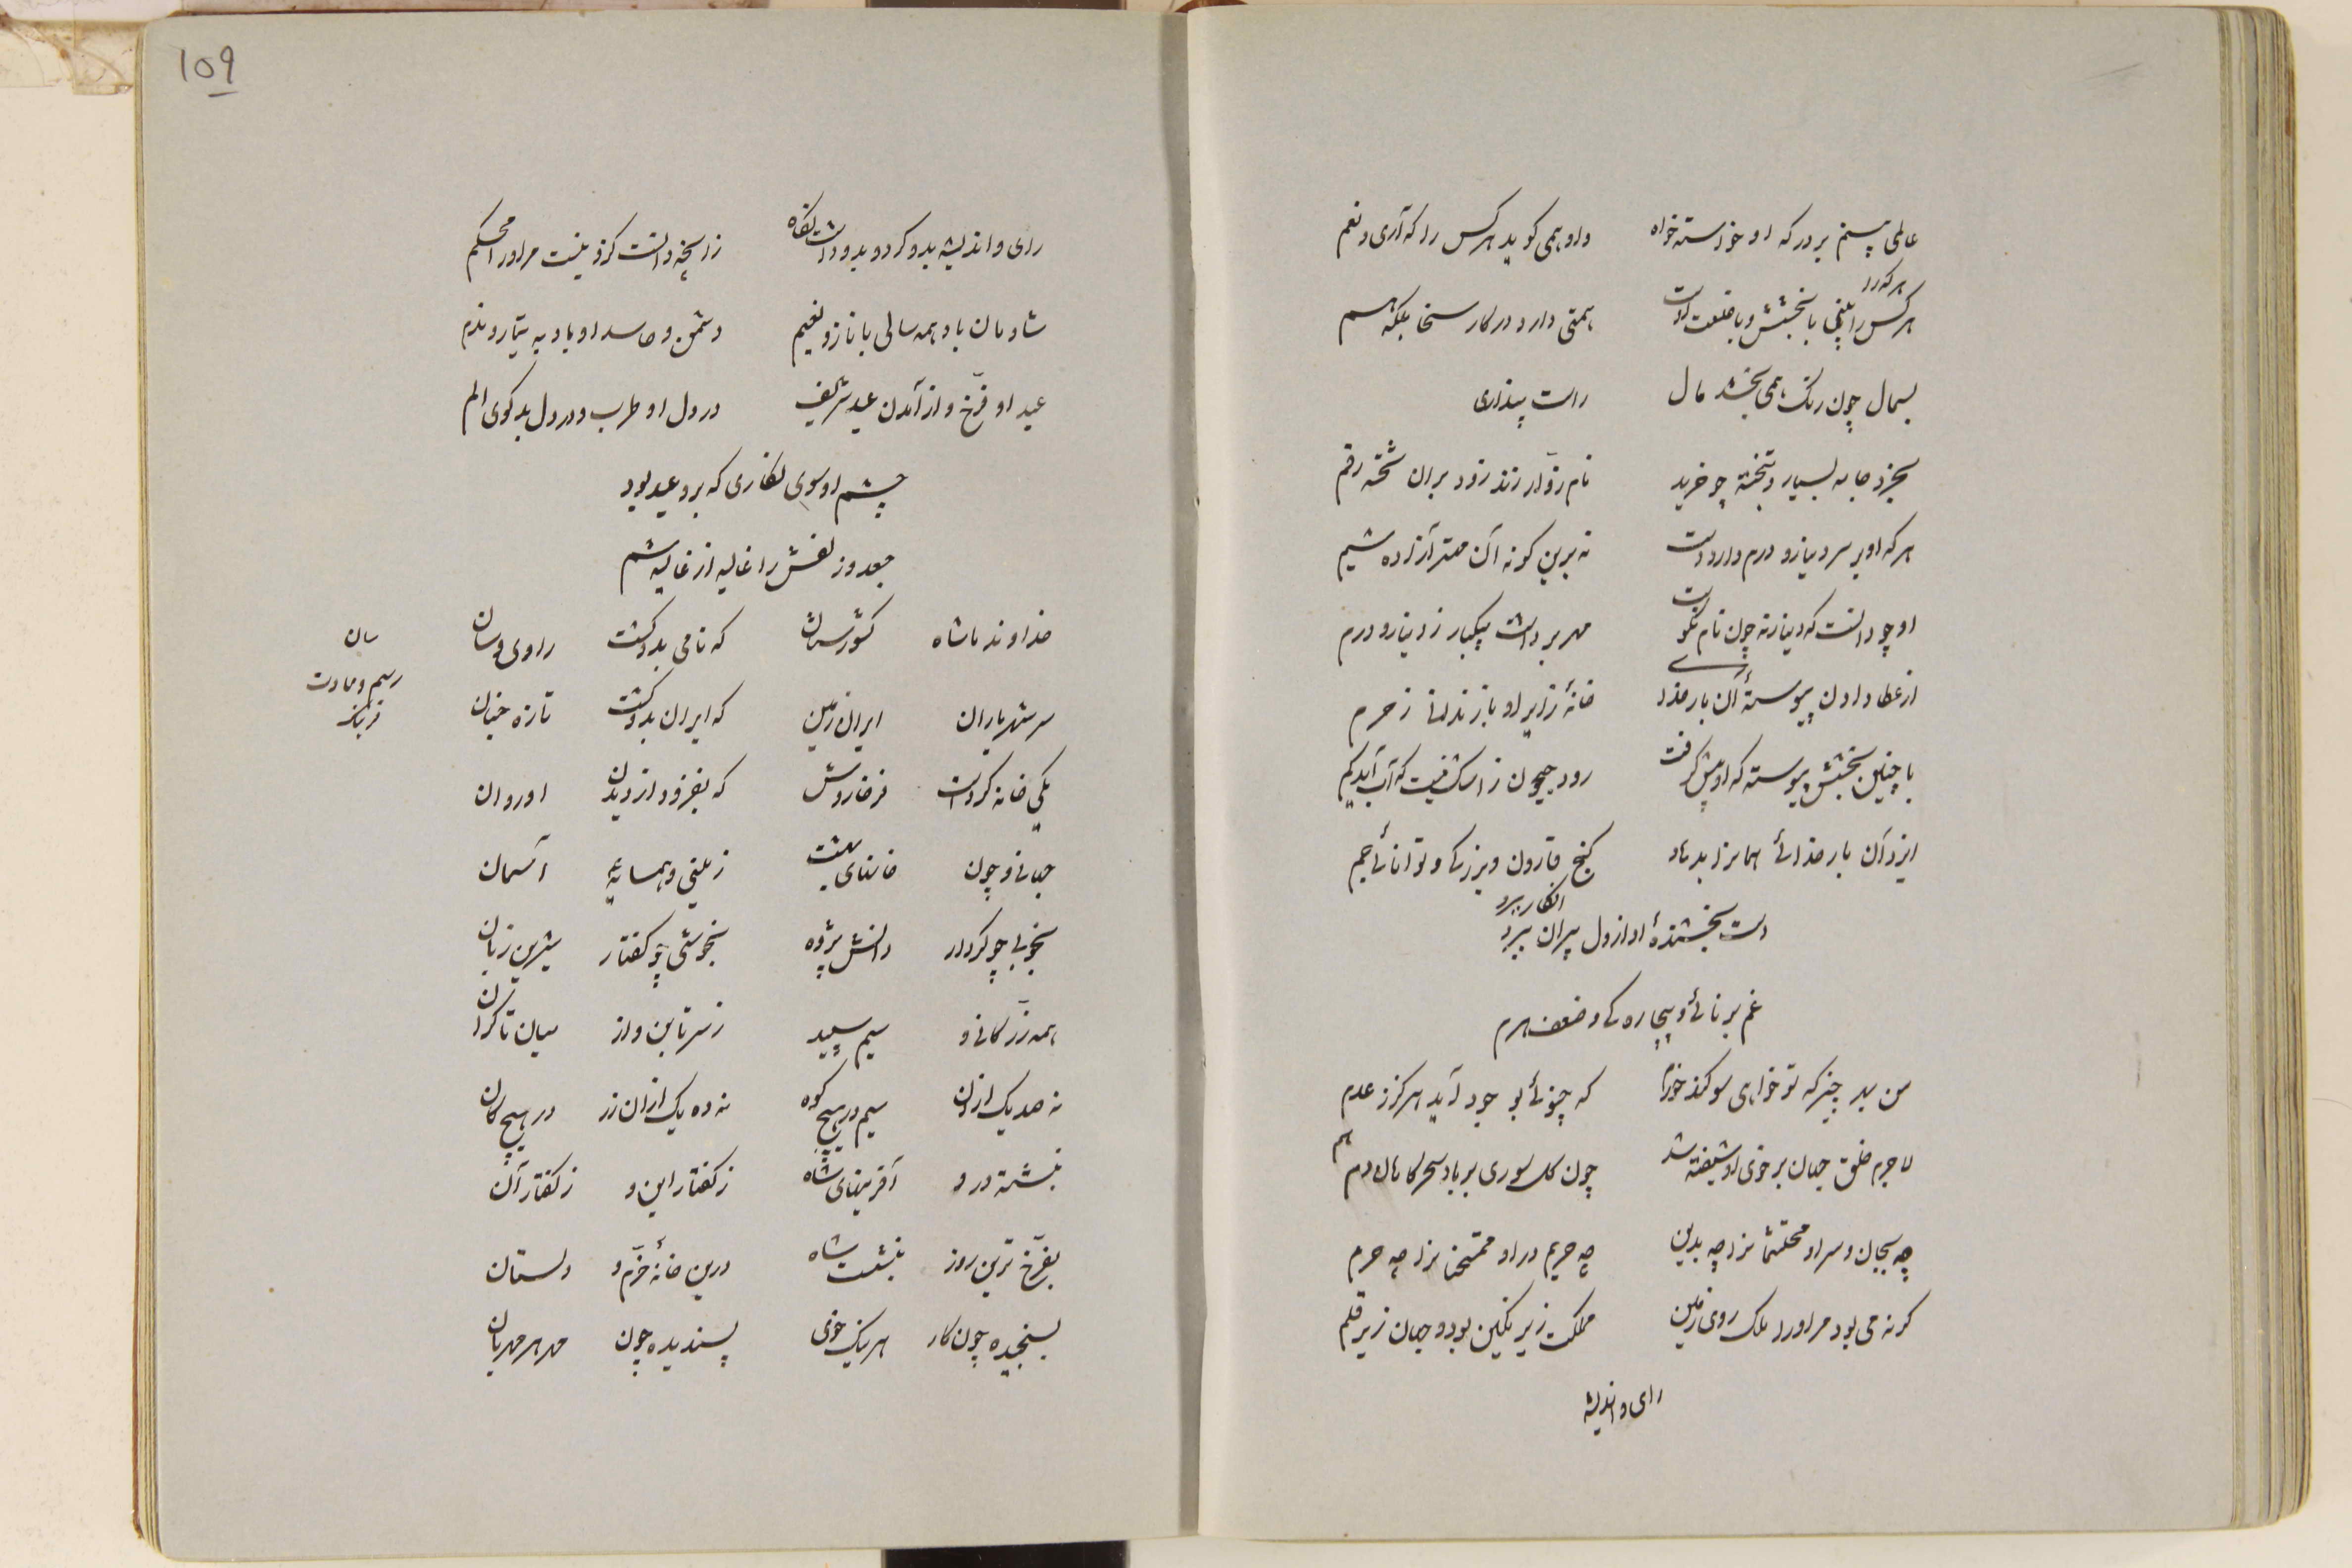 عالمی بینم بر درگه او خواسته خواه    واو همی گوید هر کس را که آری و نعم
هر که را
هر کس را بینی با بخشش و با خلعت اوست    همتی دارد در کار سخا بلکه همم
بسمال چون رنگ همی بخشد مال    راست پنداری
بخرد جامه بسیار و تخته چو خرید    نام زوار زند زود بران تخته رقم
هر که او بر سر دینار و درم دارد دست    نه برین گونه آن مهتر آزاده شیم
او چو دانست که دینار نه چون نام نکوست    مهر برداشت بیکبار ز دینار و درم
از عطا دادن پیوستهٔ آن بار خدای    خانهٔ زایر او باز ندانی ز حرم
با چنین بخشش پیوسته که او پیش گرفت    رود جیحون ز اشک نیست که آب آید کم
ایزد آن بار خدائی همانرا بدهاد    گنج قارون و بزرگی و توانائی جم
انگار ببرد
دست بخشندهٔ او از دل پیران ببرد
غم برنائی و بیچارگی و ضعف هرم
من بهر چیز که تو خواهی سوگند خورم    که چنوئی بوجود آید هرگز ز عدم
لاجرم خلق جهان بر خوی او شیفته شد    چون گل سوری بر باد سحرگاهان دم
هم
چه بجان و سر او محتشمانرا چه بدین    چه حریم در او ممتحنانرا چه حرم
گر نه می بود مر او را ملک روی زمین    مملکت زیر نگین بود و جهان زیر قلم
رای و اندیشه
109
رای و اندیشه بدو کرد و بدو داشت نگاه    زانچه دانست کزو نیست مر او را محکم
شادمان باد همه سالی با ناز و نعیم    دشمن و حاسد او باد به تیمار و ندم
عید او فرخ و از آمدن عید شریف    در دل او طرب و در دل بدگوی الم
چشم او سوی نگاری که برو عید بود
جعد و زلفش را غالیه از غالیه شم
خداوند ما شاه    کشورستان    که نامی بدو گشت    زاولستان
سان
سر شهریاران    ایران زمین    که ایران بدو گشت    تازه جوان
رسم و عادت
یکی خانه کردست    فرخاردیس    که بفزود از دیدن    او روان
جهانی و چون    خانهای بهشت    زمینی و همسایهٔ    آسمان
بخوبی چو کردار    دانش پژوه    بخوشی چو گفتار    شیرین زبان
همه زر کانی و    سیم سپید    ز سر تا بن و از    میان تا کران
نه صد یک ازان    سیم در هیچ کوه    نه ده یک ازان زر    در هیچ کان
نبشته درو    آفرینهای شاه    ز گفتار این و    ز گفتار آن
بفرخ ترین روز    بنشست شاه    درین خانهٔ خرم و    دلستان
بسنجیده چون کار    هر نیک خوی    پسندیده چون    مهر هر مهربان